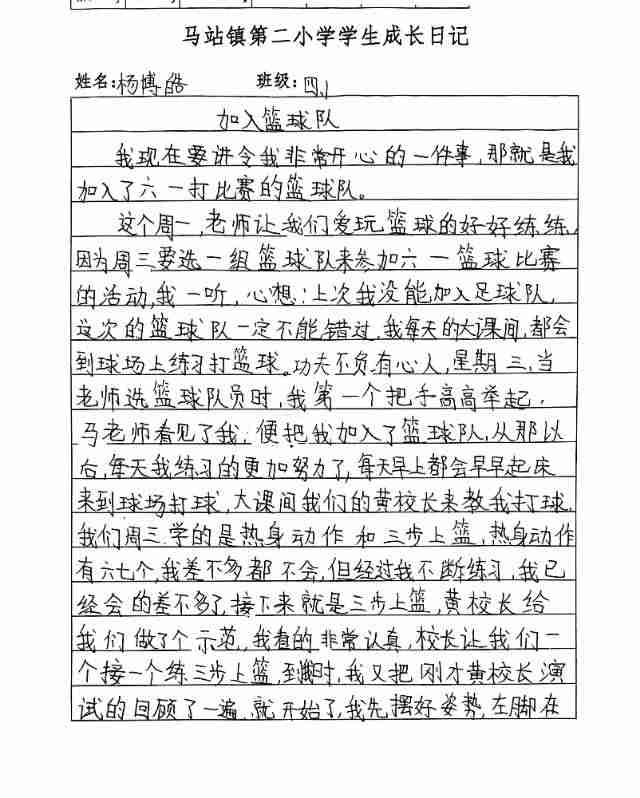 马站镇第二小学学生成长日记
姓名:杨博皓 班级:四.1
加入篮球队
我现在要讲令我非常开心的一件事,那就是我
加入了六一打比赛的篮球队。
这个周一,老师让我们爱玩篮球的好好练练,
因为周三要选一组篮球队来参加六一篮球比赛
的活动,我一听,心想:上次我没能加入足球队,
这次的篮球队一定不能错过,我每天的大课间,都会
到球场上练习打篮球。功夫不负有心人,星期三,当
老师选篮球队员时,我第一个把手高高举起,
马老师看见了我,便把我加入了篮球队,从那以
后,每天我练习的更加努力了,每天早上都会早早起床
来到球场打球,大课间我们的黄校长来教我打球,
我们周三学的是热身动作和三步上篮,热身动作
有六七个,我差不多都不会,但经过我不断练习,我已
经会的差不多了,接下来就是三步上篮,黄校长给
我们做了个示范,我看的非常认真,校长让我们一
个接一个练三步上篮,到我时,我又把刚才黄校长演
试的回顾了一遍,就开始了,我先摆好姿势,左脚在